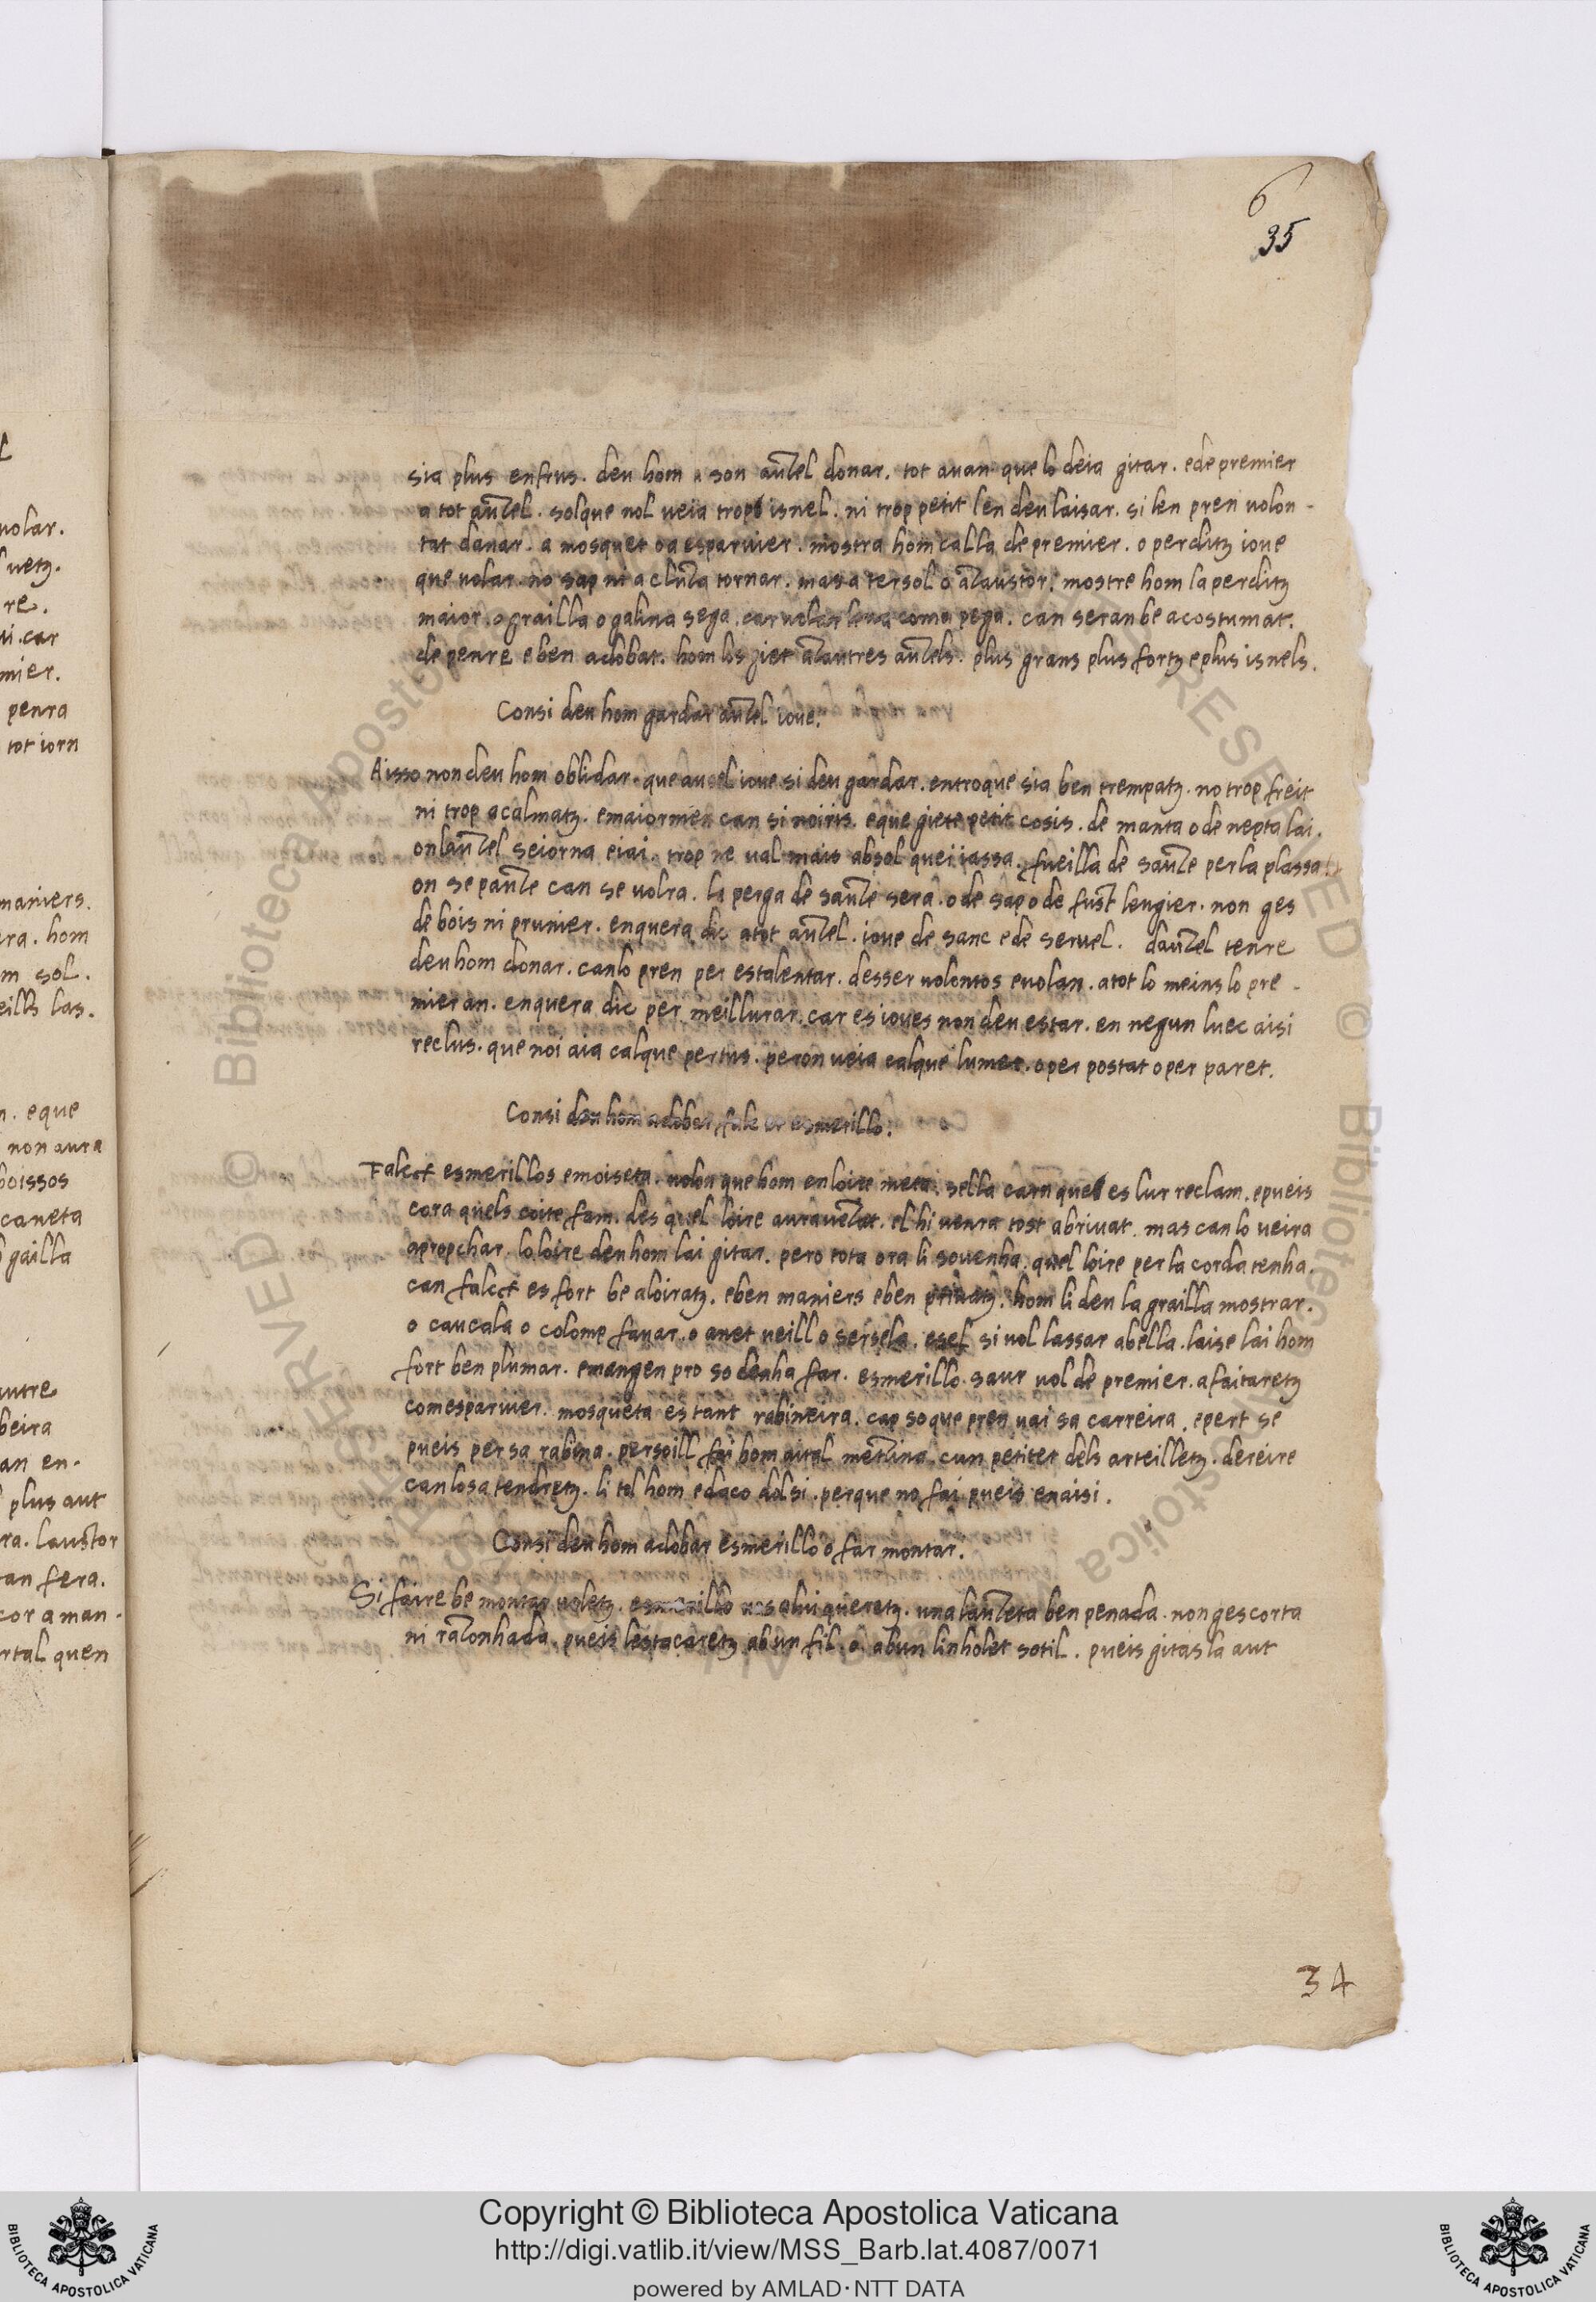 6
35
sia plus enfrus. deu hom a son auzel donar. tot auan que lo deia gitar. e de premier
a tot auzel. sol que nol ueia trop isnel. ni trop petit len deu laisar. si len pren uolon-
tat danar. a mosquet o a esparuier. mostra hom calla de premier. o perditz ioue
que uolar. no sap ni a cluza tornar. mas a tersol o a laustor. mostre hom la perditz
maior. o grailla o galina sega. car uolar coma pega. can seran be acostumat.
de penre e ben adobat. hom los giet autres auzels. plus grans plus fortz e plus isnels.
Consi deu hom gardar auzel ioue.
Aisso non deu hom oblidar. que aucel ioue si deu gardar. entroque sia ben trempatz. no trop freit
ni trop acalmatz. e maiormen can si noiris. e que giete petit cosis. de manta o de nepta lai.
on lauzel seiorna e iai. trop ne ual mais ab sol quei iassa. fueilla de sauze per la plassa
on se pauze can se uolra. la perga de sauze sera. o de sap o de fust leugier. non ges
de bois ni prunier. enquera dic a tot auzel. ioue de sanc e de seruel. dauzel tenre
deu hom donar. can lo pren per estalentar. desser uolontos e uolan. a tot lo meins lo pre-
mier an. enquera dic per meillurar. car es ioues non deu estar. en negun luec aisi
reclus. que noi aia calque pertus. per on ueia calque lumer. o per postat o per paret.
Consi deu hom adobar falc et esmerillo.
Falc et esmerillos e moiseta. uolon que hom en loire meta. sella carn que es lur reclam. e pueis
cora quels coite fam. des quel loire aura uezat. el hi uenra tost abriuat. mas can lo ueira
apropchar. lo loire deu hom lai gitar. pero tota ora li souenha. quel loire per la corda tenha.
can falc es fort be aloiratz. e ben maniers e ben priuatz. hom li deu la grailla mostrar.
o caucala o colomp fauar. o anet ueill o sersela. e sel si uol lassar ab ella. laise lai hom
fort ben plumar. e mangen pro so denha far. esmerillo saur uol de premier. afaitaretz
com esparuier. mosqueta es tant rabineira. cap so que pren uai sa carreira. e pert se
pueis per sa rabina. per soill fai hom aital metzina. cun petitet dels arteilletz. dereire
can los atendretz. li tol hom e daco dolsi. per que no fai pueis enaisi.
Consi deu hom adobar esmerillo o far montar.
Si faire be montar uoletz. esmerillo uos alui queretz. una lauzeta ben penada. non ges corta
ni razonhada. pueis lestacaretz ab un fil. o ab un linholet sotil. pueis gitas la aut
34
Copyright © Biblioteca Apostolica Vaticana
http://digi.vatlib.it/view/MSS_Barb.lat.4087/0071
powered by AMLAD·NTT DATA